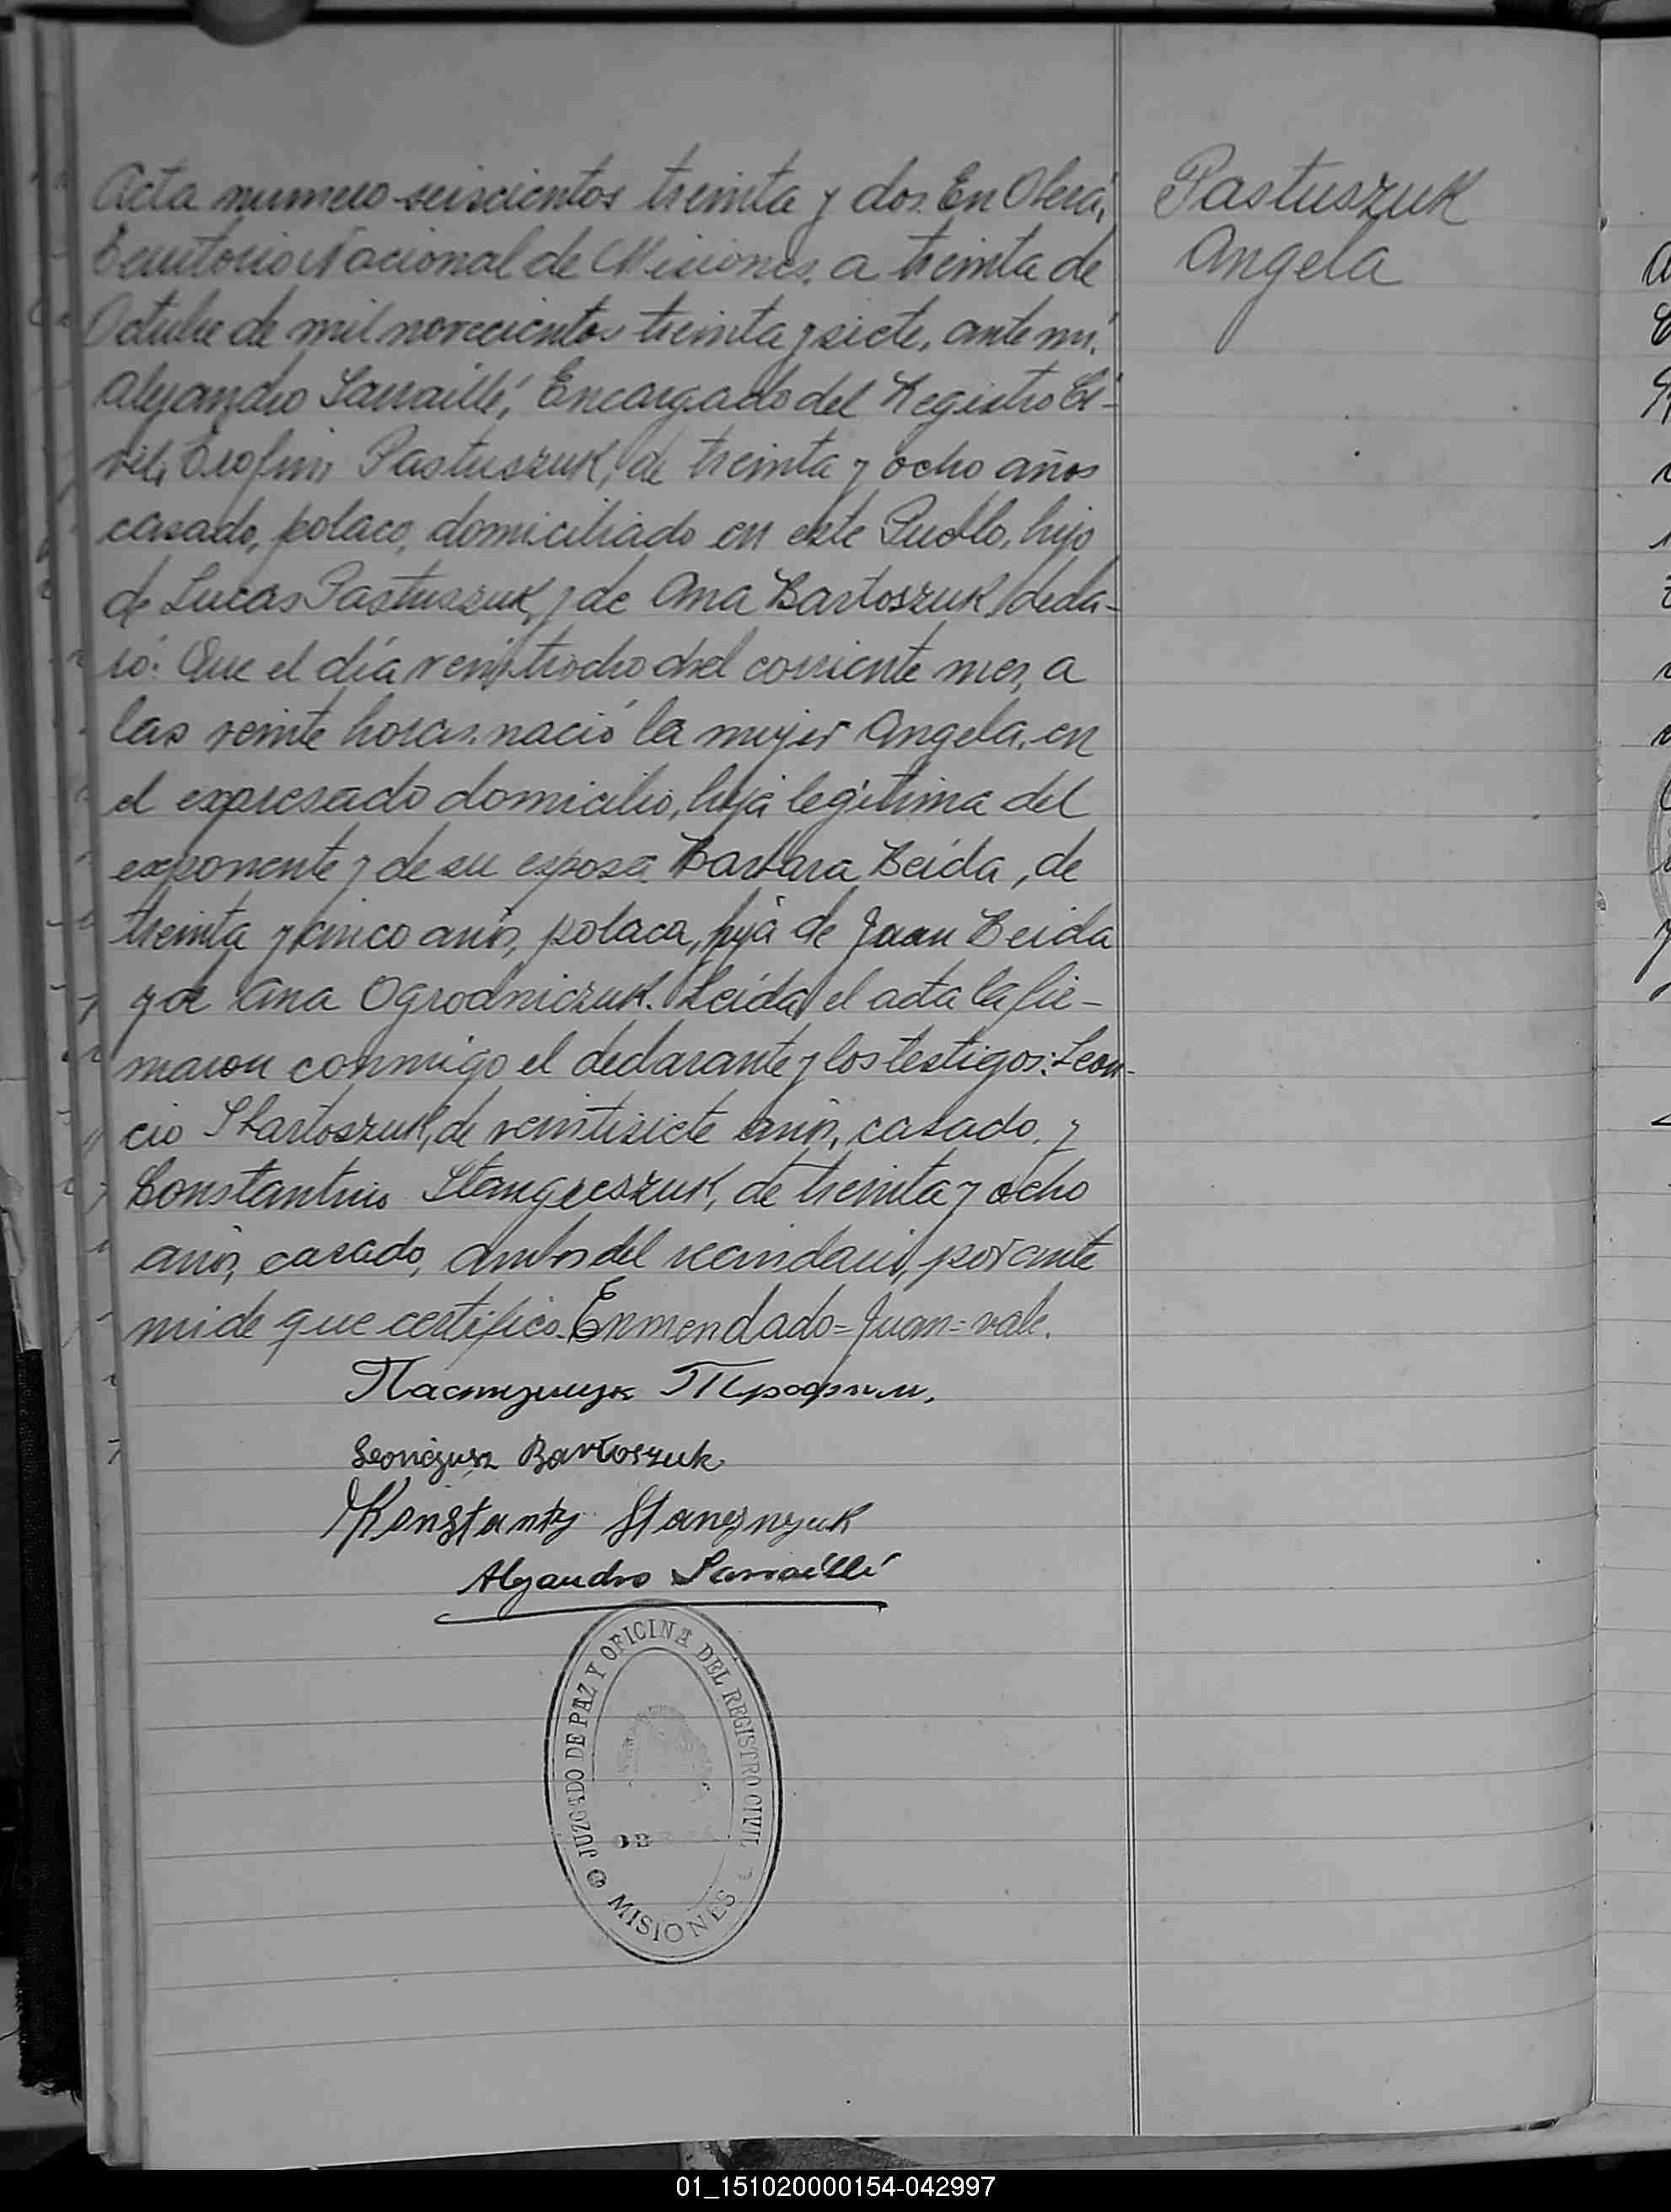 Acta numero seiscientos treinta y dos. En Oberá,
Territorio Nacional de Misiones, a treinta de
Octubre de mil novecientos treinta y siete, ante mi,
Alejandro Sarraillé, Encargado del Registro Ci-
vil, Trofim Pastuszuk, de treinta y ocho años
casado, polaco, domiciliado en este Pueblo, hijo
de Lucas Pastuszuk, y de Ana Bartoszuk, decla-
ró: Que el día veintiocho del corriente mes, a
las veinte horas, nació la mujer Angela, en
el expresado domicilio, hija legitima del
exponente y de su esposa Barbara Beida, de
treinta y cinco años, polaca, hija de Juan Beida
y de Ana Ogrodniczuk. Leída el acta la fir-
maron conmigo el declarante y los testigos: Leon-
cio Bartoszuk, de veintisiete años, casado, y
Constantino de treinta y ocho
años, casado, ambos del vecindario, por ante
mi de que certifico. Enmendado=Juan=vale.
Пастушук Трофим.
Leoncjusz Bartoszuk
Konstanty
Alejandro Sarraillé
Pastuszuk
Angela
JUZGADO DE PAZ Y OFICINA DEL REGISTRO CIVIL
MISIONES
01_151020000154-042997